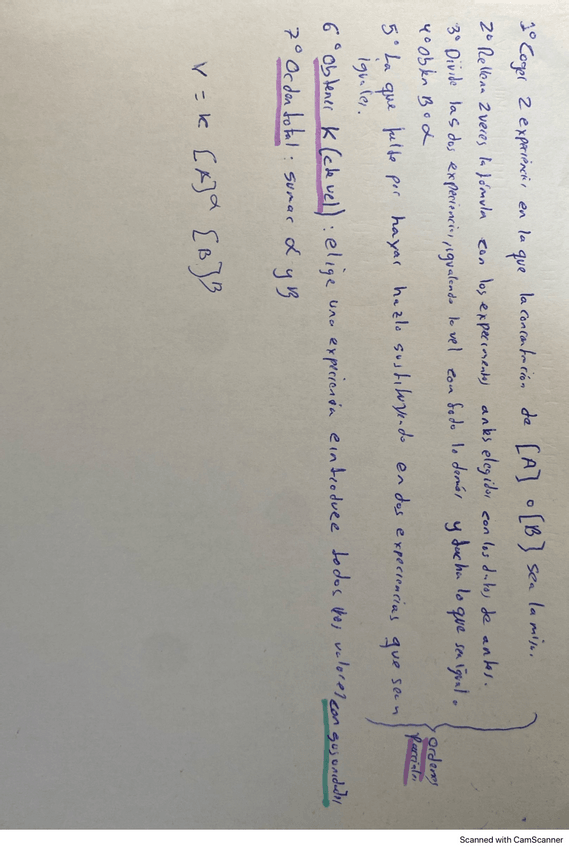 1º Coger 2 experiencias en la que la concentración de [A] o [B] sea la mism.
2º Rellena 2 veces la fórmula con los experimentos antes elegidos con los datos de antes.
3º Divide las dos experiencias, igualando la vel con todo lo demás y tacha lo que sea igual.
4º Obtén B o α
5º La que falta por hayar hazlo sustituyendo en dos experiencias que sean
iguales.
ordenes
parciales
6º Obtener K (cte vel): elige una experiencia e introduce todos los valores con sus unidades
7º Orden total: sumar α y B
V = K [A]^α [B]^B
Scanned with CamScanner